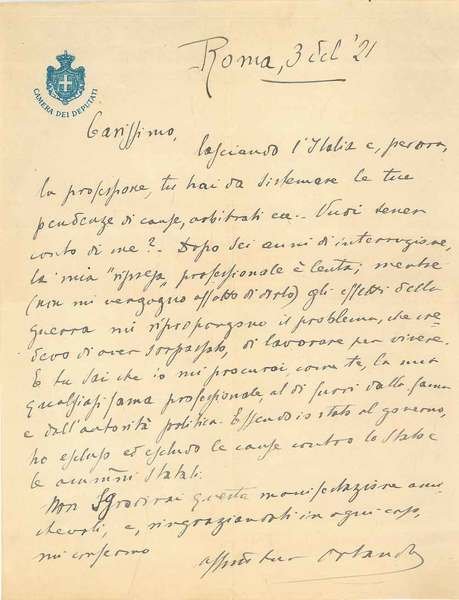 Roma, 3 feb '21
CAMERA DEI DEPUTATI
Carissimo,
lasciando l'Italia e, per ora,
la professione, tu hai da sistemare le tue
pendenze di cause, arbitrati ecc. Vuoi tener
conto di me? Dopo sei anni di interruzione,
la mia "ripresa" professionale è lenta; mentre
(non mi vergogno affatto di dirlo) gli effetti della
guerra mi ripropongono il problema, che cre-
devo di aver sorpassato, di lavorare per vivere.
E tu sai che io mi procurai, come te, la mia
qualsiasi fama professionale, al di fuori dalla fama
e dall'autorità politica. Essendo io stato al governo,
ho escluso ed escludo le cause contro lo Stato e
le ammni statali.
Non sgradirai questa manifestazione ami-
chevole, e, ringraziandoti in ogni caso,
mi confermo
Orlando